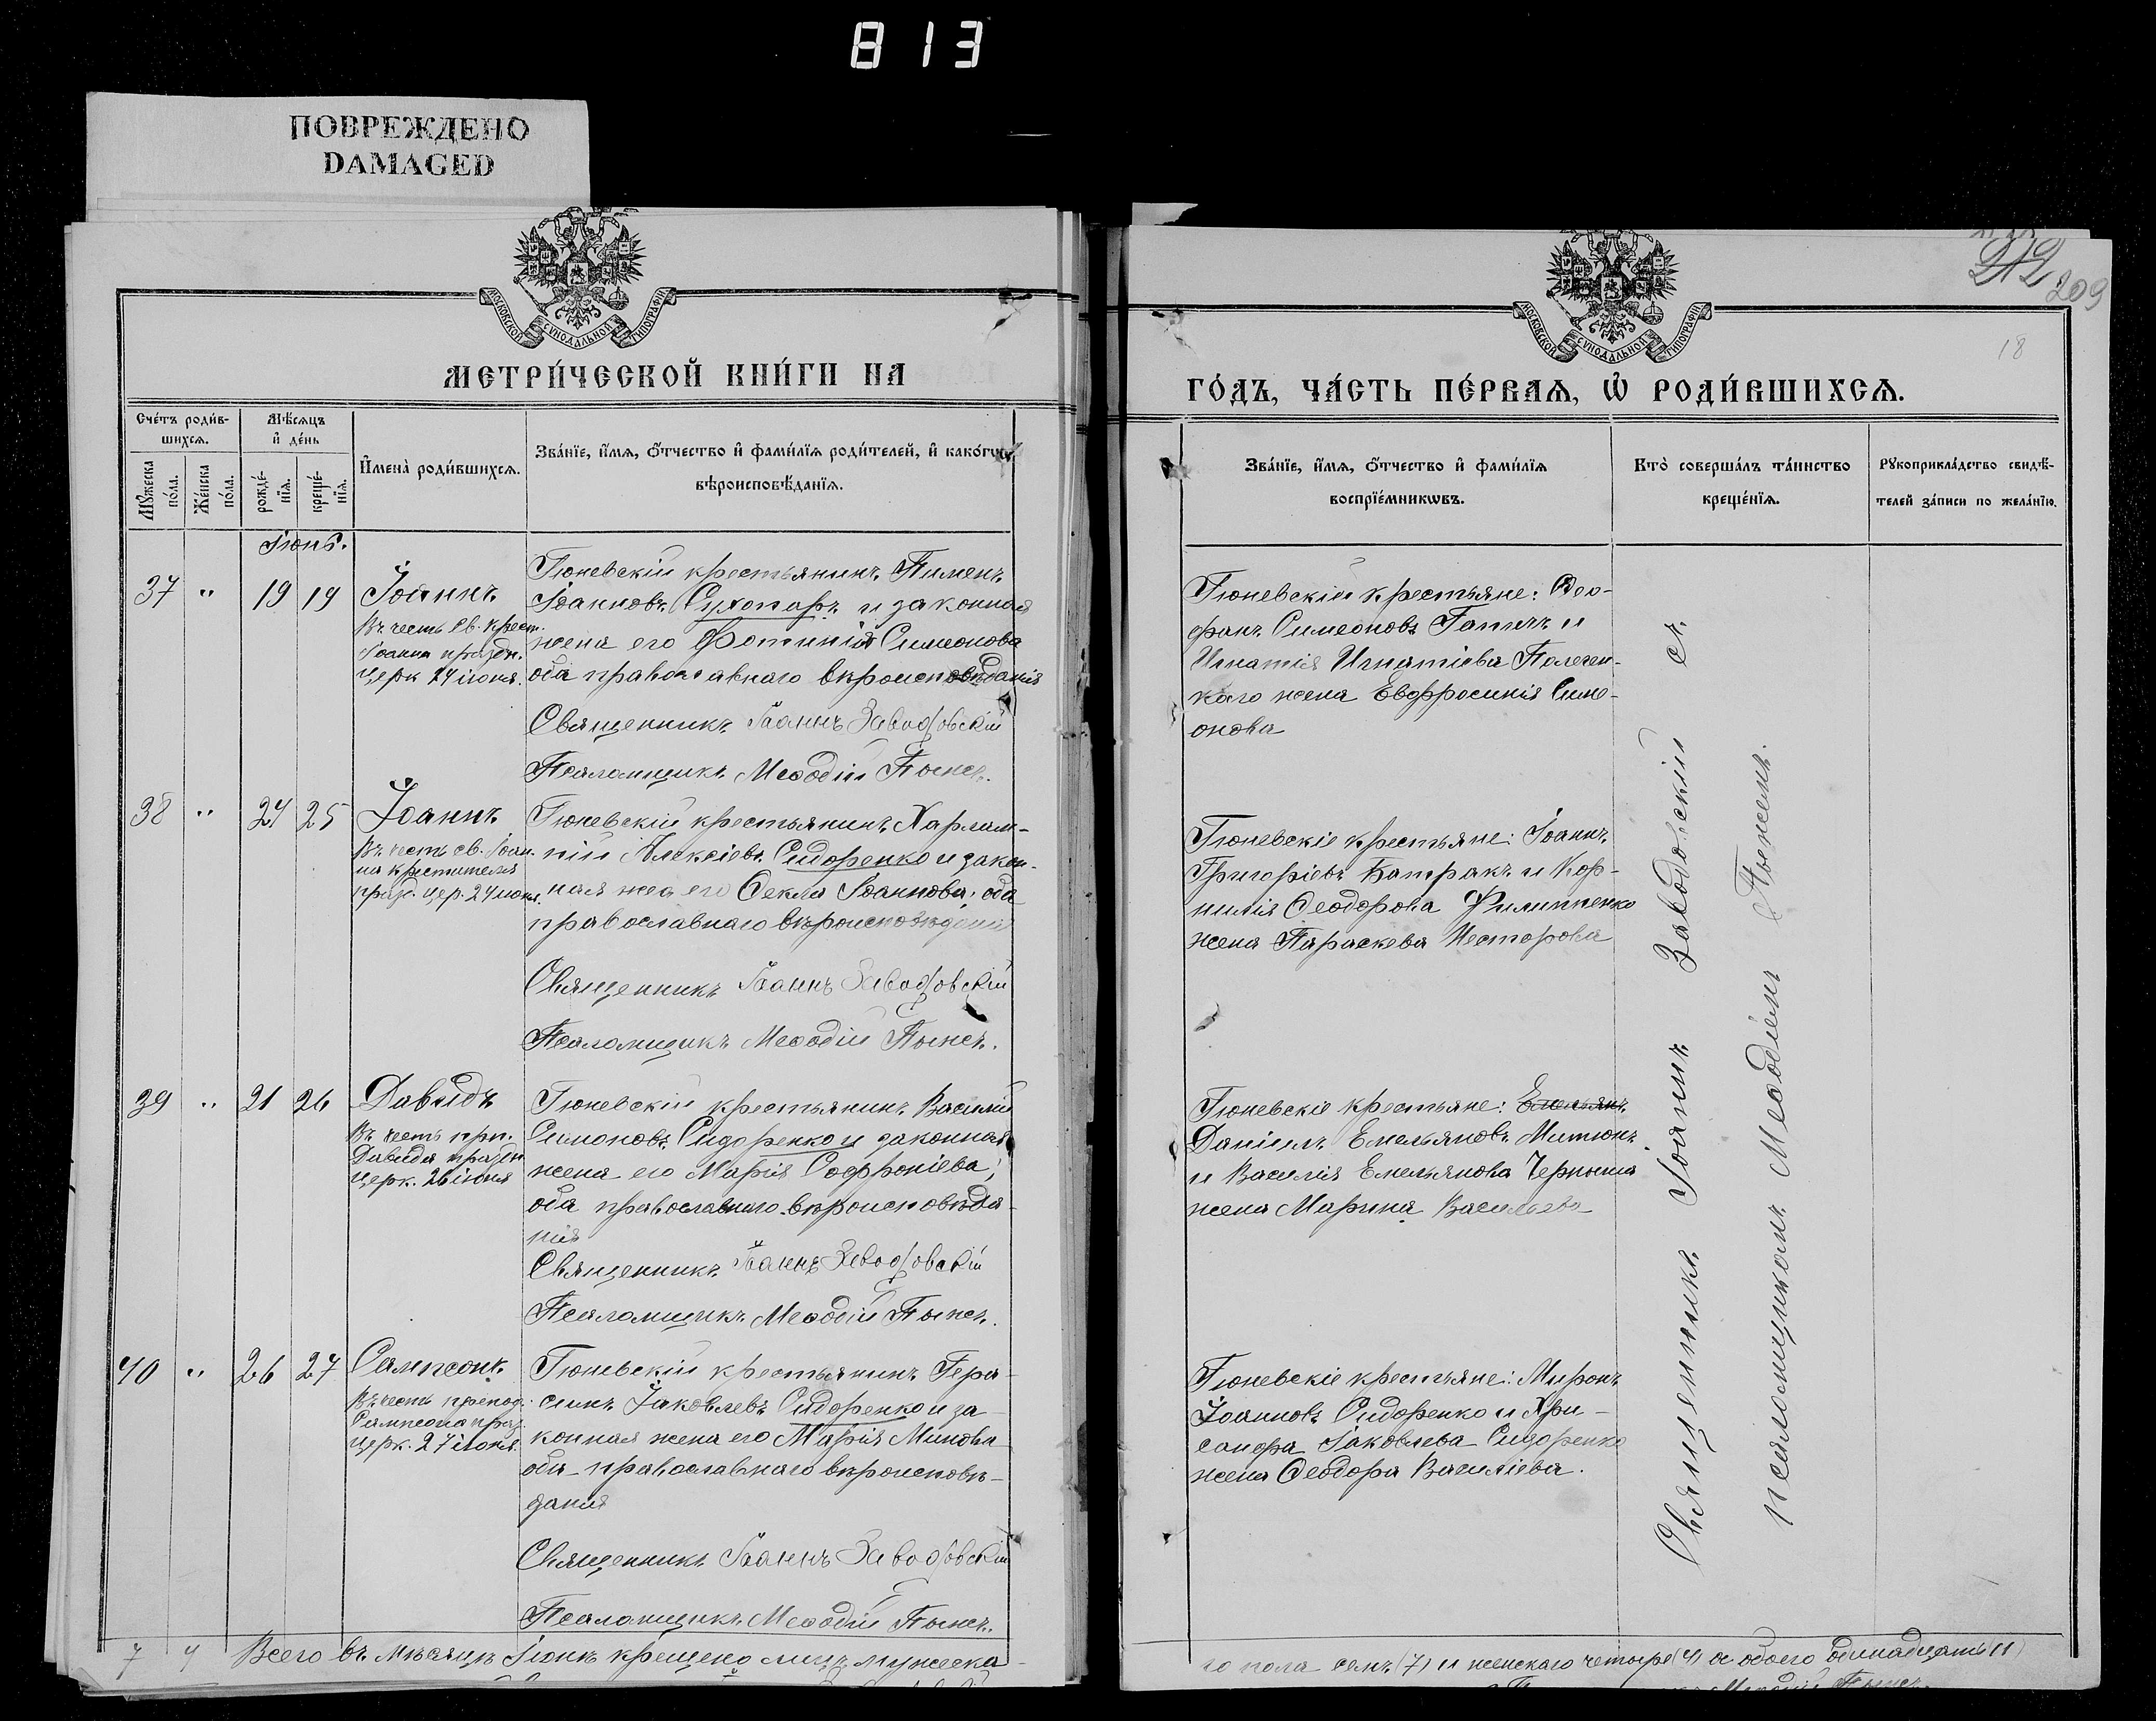 813
ПОВРЕЖДЕНО
DAMAGED
МОСКОВСКОЙ СѴНОДАЛЬНОЙ ТИПОГРАФІИ
МЕТРИ́ЧЕСКОЙ КНИ́ГИ НА
Сче́тъ роди́в-
шихсѧ.
Мꙋжеска по́ла.
Же́нска по́ла.
Мѣ́сѧцъ и҆ де́нь
рожде́-нїѧ.
креще́-нїѧ.
И҆мена̀ роди́вшихсѧ.
Зва́нїе, и҆́мѧ, ѻ҆́тчество и҆ фами́лїѧ роди́телей, и҆ како́гѡ
вѣроисповѣ́данїѧ.
Іюнь.
37 " 19 19
Іоаннъ
Въ честь св. Крест.
Іоанна празд.
церк 24 іюня.
Тюневскій крестьянинъ Пименъ
Іоанновъ Сухопаръ и законная
жена его Фотинія Симеонова
оба православнаго вѣроисповѣданія
Священникъ Іоаннъ Заводовскій
Псаломщикъ Меѳодій
38 " 24 25
Іоаннъ
Въ честь св. Іоан-
на Крестителя
празд. цер. 24 іюня.
Тюневскій крестьянинъ Харлам-
пій Алексіевъ Сидоренко и закон-
ная жена его Ѳекла Іоаннова; оба
православнаго вѣроисповѣданія
Священникъ Іоаннъ Заводовскій
Псаломщикъ Меѳодій
39 " 21 26
Давидъ
Въ честь прп.
Давида праздн
церк. 26 іюня
Тюневскій крестьянинъ Василій
Симоновъ Сидоренко и законная
жена его Марія Софроніева;
оба православнаго вѣроисповѣда-
нія
Священникъ Іоаннъ Заводовскій
Псаломщикъ Меѳодій
40 " 26 27
Сампсонъ
Въ честь препод.
Сампсона праз.
церк. 27 іюня.
Тюневскій крестьянинъ Гера-
симъ Іаковлевъ Сидоренко и за-
конная жена его Марія Минова
оба православнаго вѣроисповѣ-
данія
Священникъ Іоаннъ Заводовскій
Псаломщикъ Меѳодій
7 4 Всего въ мѣсяцѣ Іюнѣ крещено лицъ мужеска-
212
209
18
МОСКОВСКОЙ СѴНОДАЛЬНОЙ ТИПОГРАФІИ
ГО́ДЪ, ЧА́СТЬ ПЕ́РВАѦ, Ѡ҆ РОДИ́ВШИХСѦ.
Зва́нїе, и҆́мѧ, ѻ҆́тчество и҆ фами́лїѧ
воспрїе́мникѡвъ.
Кто̀ соверша́лъ та́инство
креще́нїѧ.
Рꙋкоприкла́дство свидѣ́-
телей за́писи по жела́нїю.
Тюневскіи крестьяне: Ѳео-
фанъ Симеоновъ и
Игнатія Игнатіева
жена Евфросинія Симе-
онова
Тюневскіе крестьяне: Іоаннъ
Григоріевъ Батракъ и Кор-
нилія Ѳеодорова Филипенко
жена Параскева Несторова
Тюневскіе крестьяне: Емельянъ
Даніилъ Емельяновъ Митюкъ
и Василія Емельянова Черныша
жена Марина Васильева
Тюневскіе крестьяне: Миронъ
Іоанновъ Сидоренко и Хри-
санфа Іаковлева Сидоренко
жена Ѳеодора Василіева.
Священникъ Іоаннъ Заводовскій съ
псаломщикомъ Меѳодіемъ
го пола семь (7) и женскаго четыре (4) а обоего одинадцать (11)